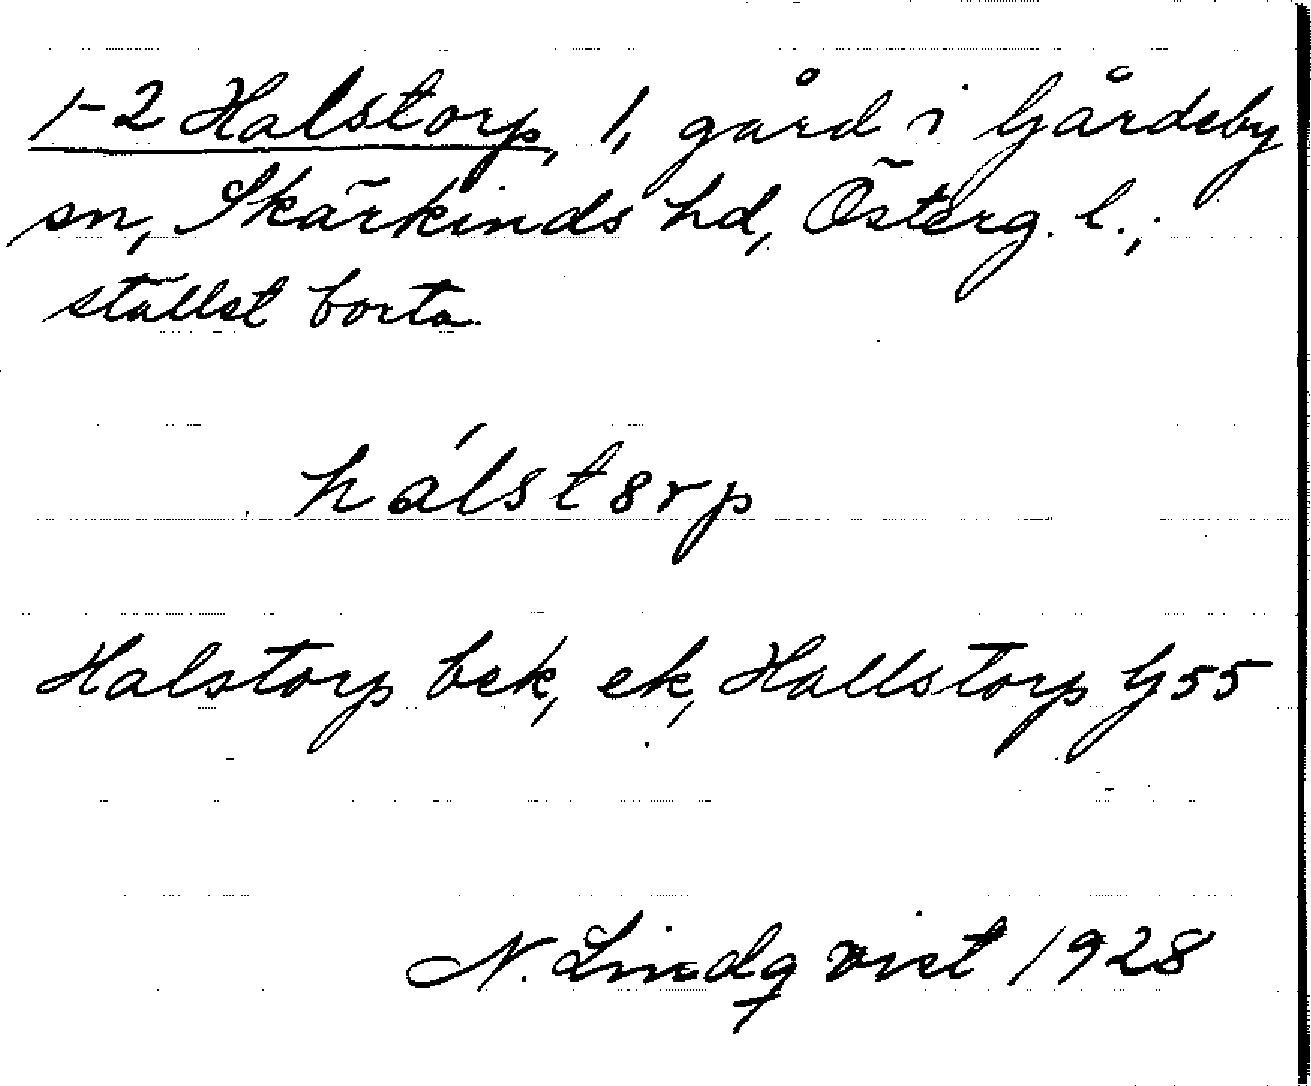 1-2 Halstorp, 1, gård i Gårdeby
sn, Skärkinds hd, Österg. l.;
stället borta
hálstɔrp
Halstorp bek, ek, Hallstorp G55
N. Lindqvist 1928